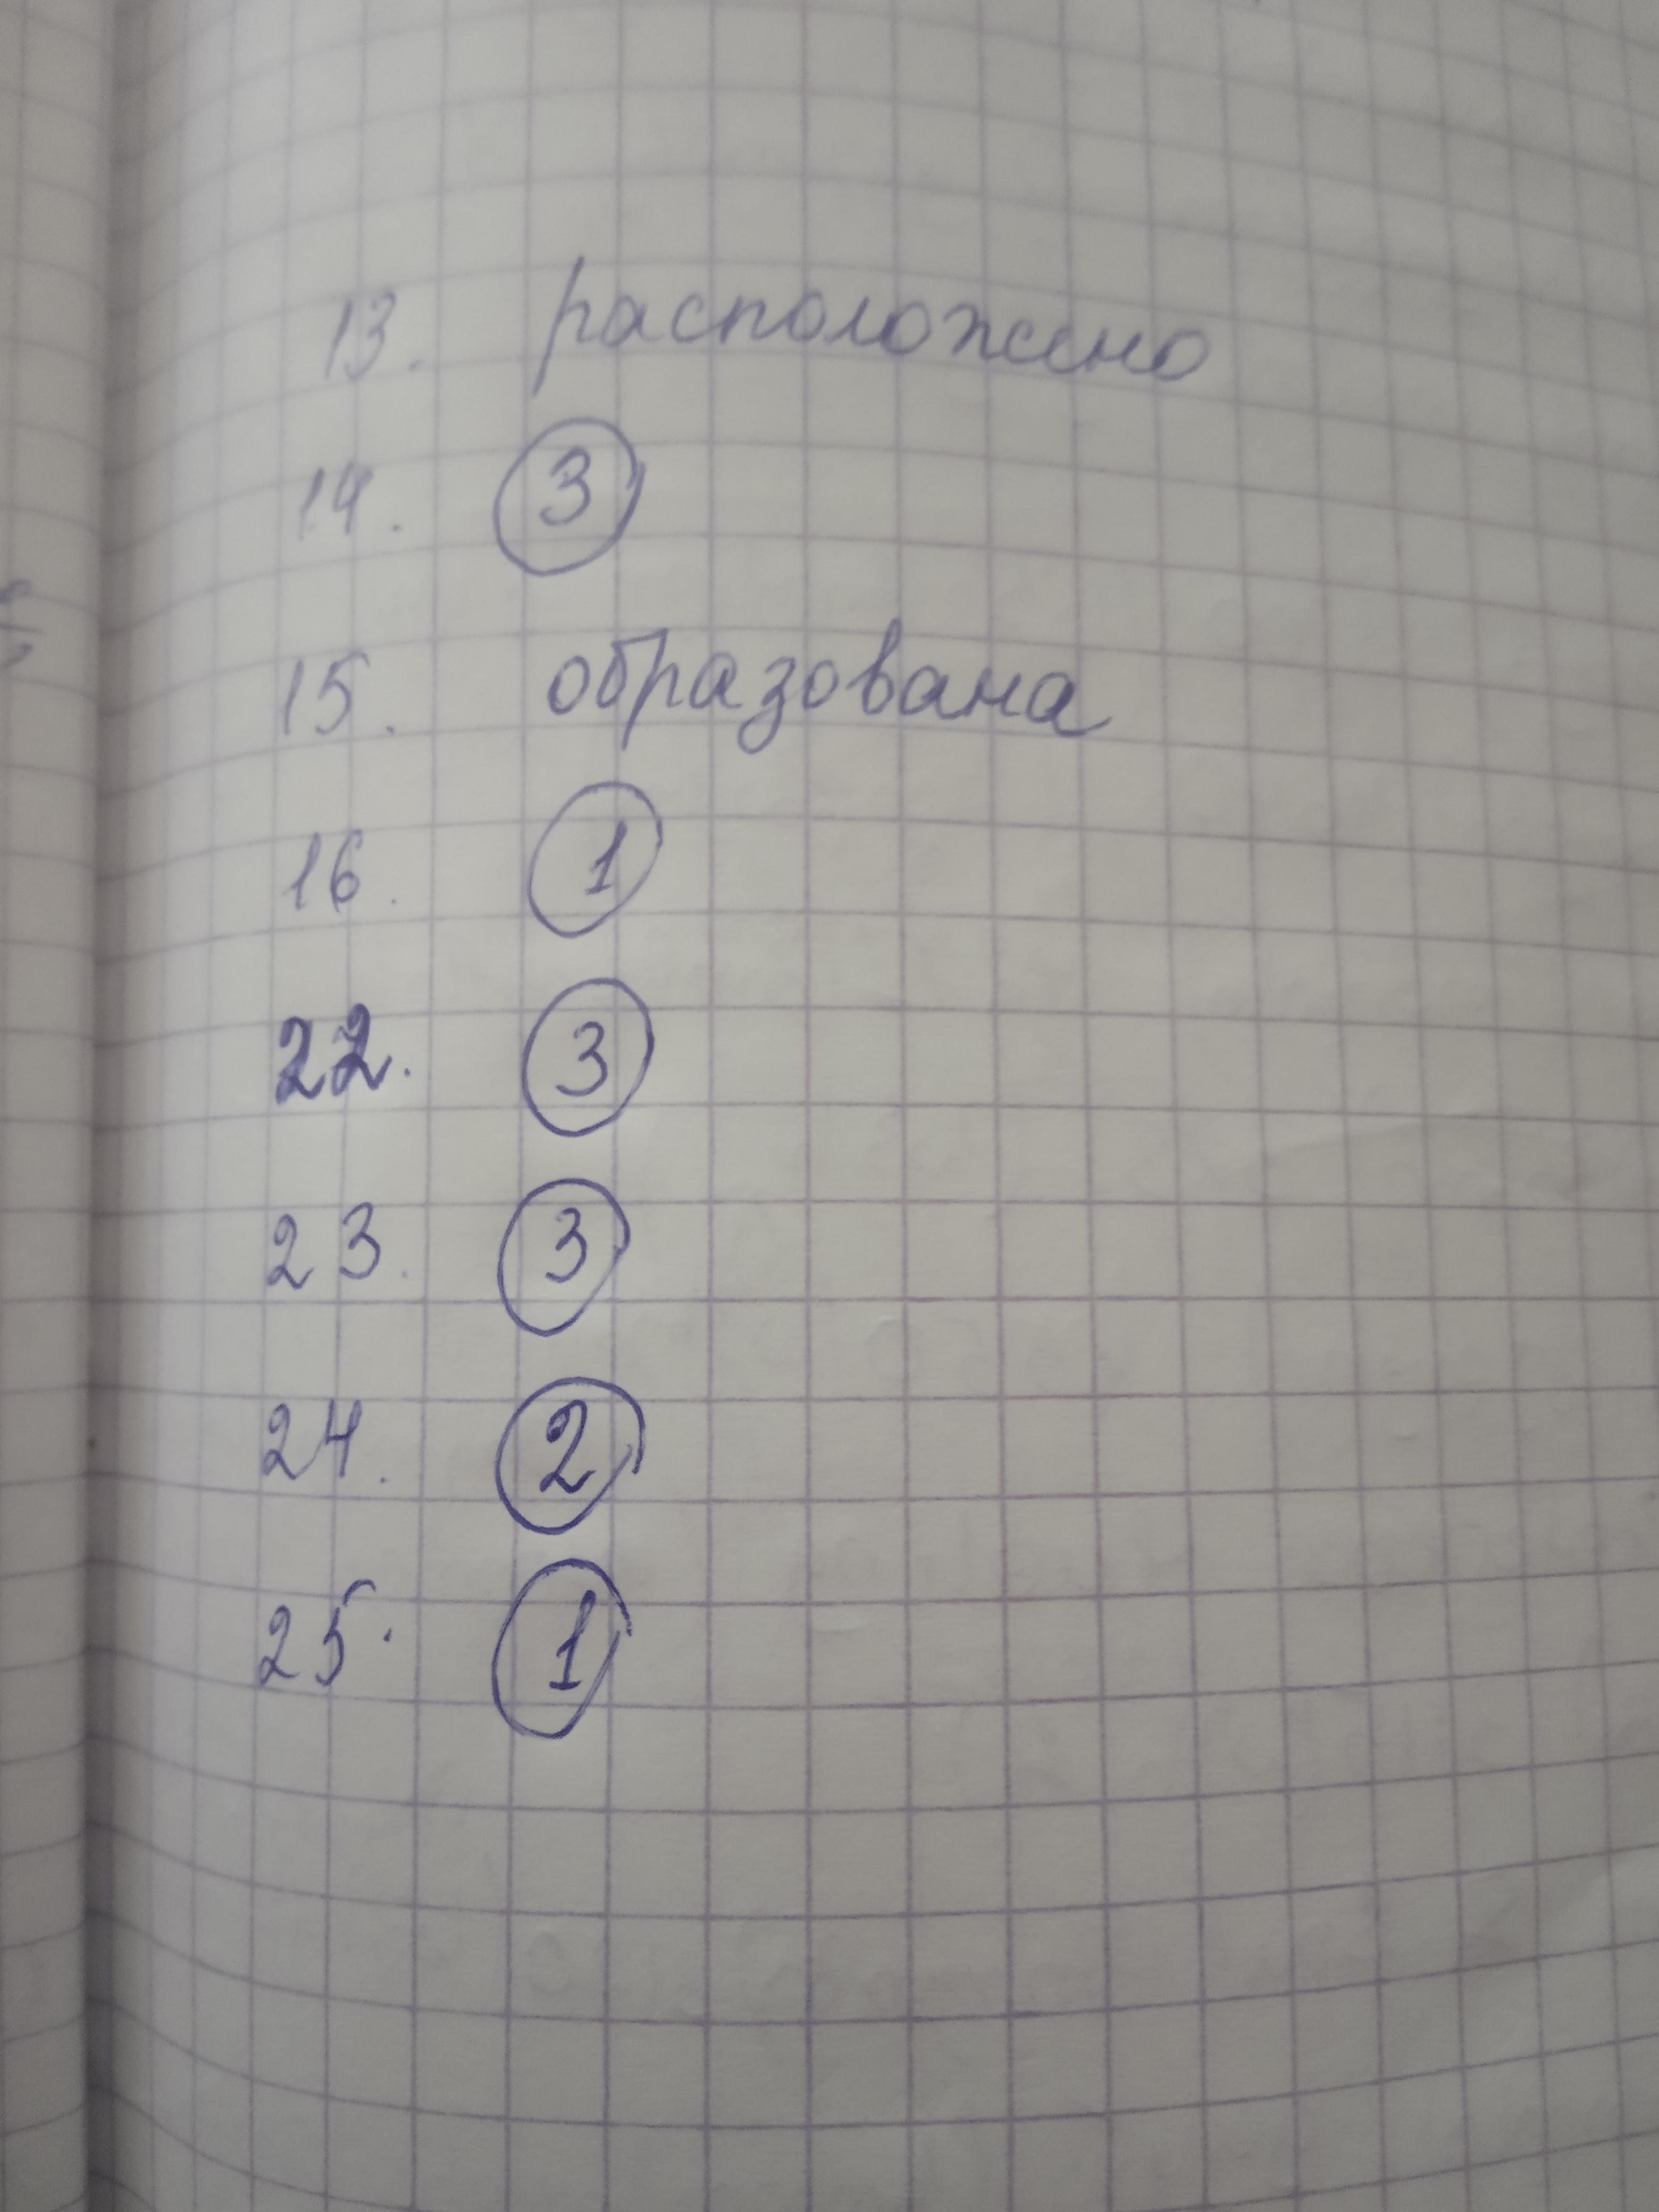 13. расположено
14. 3
15. образована
16. 1
22. 3
23. 3
24. 2
25. 1